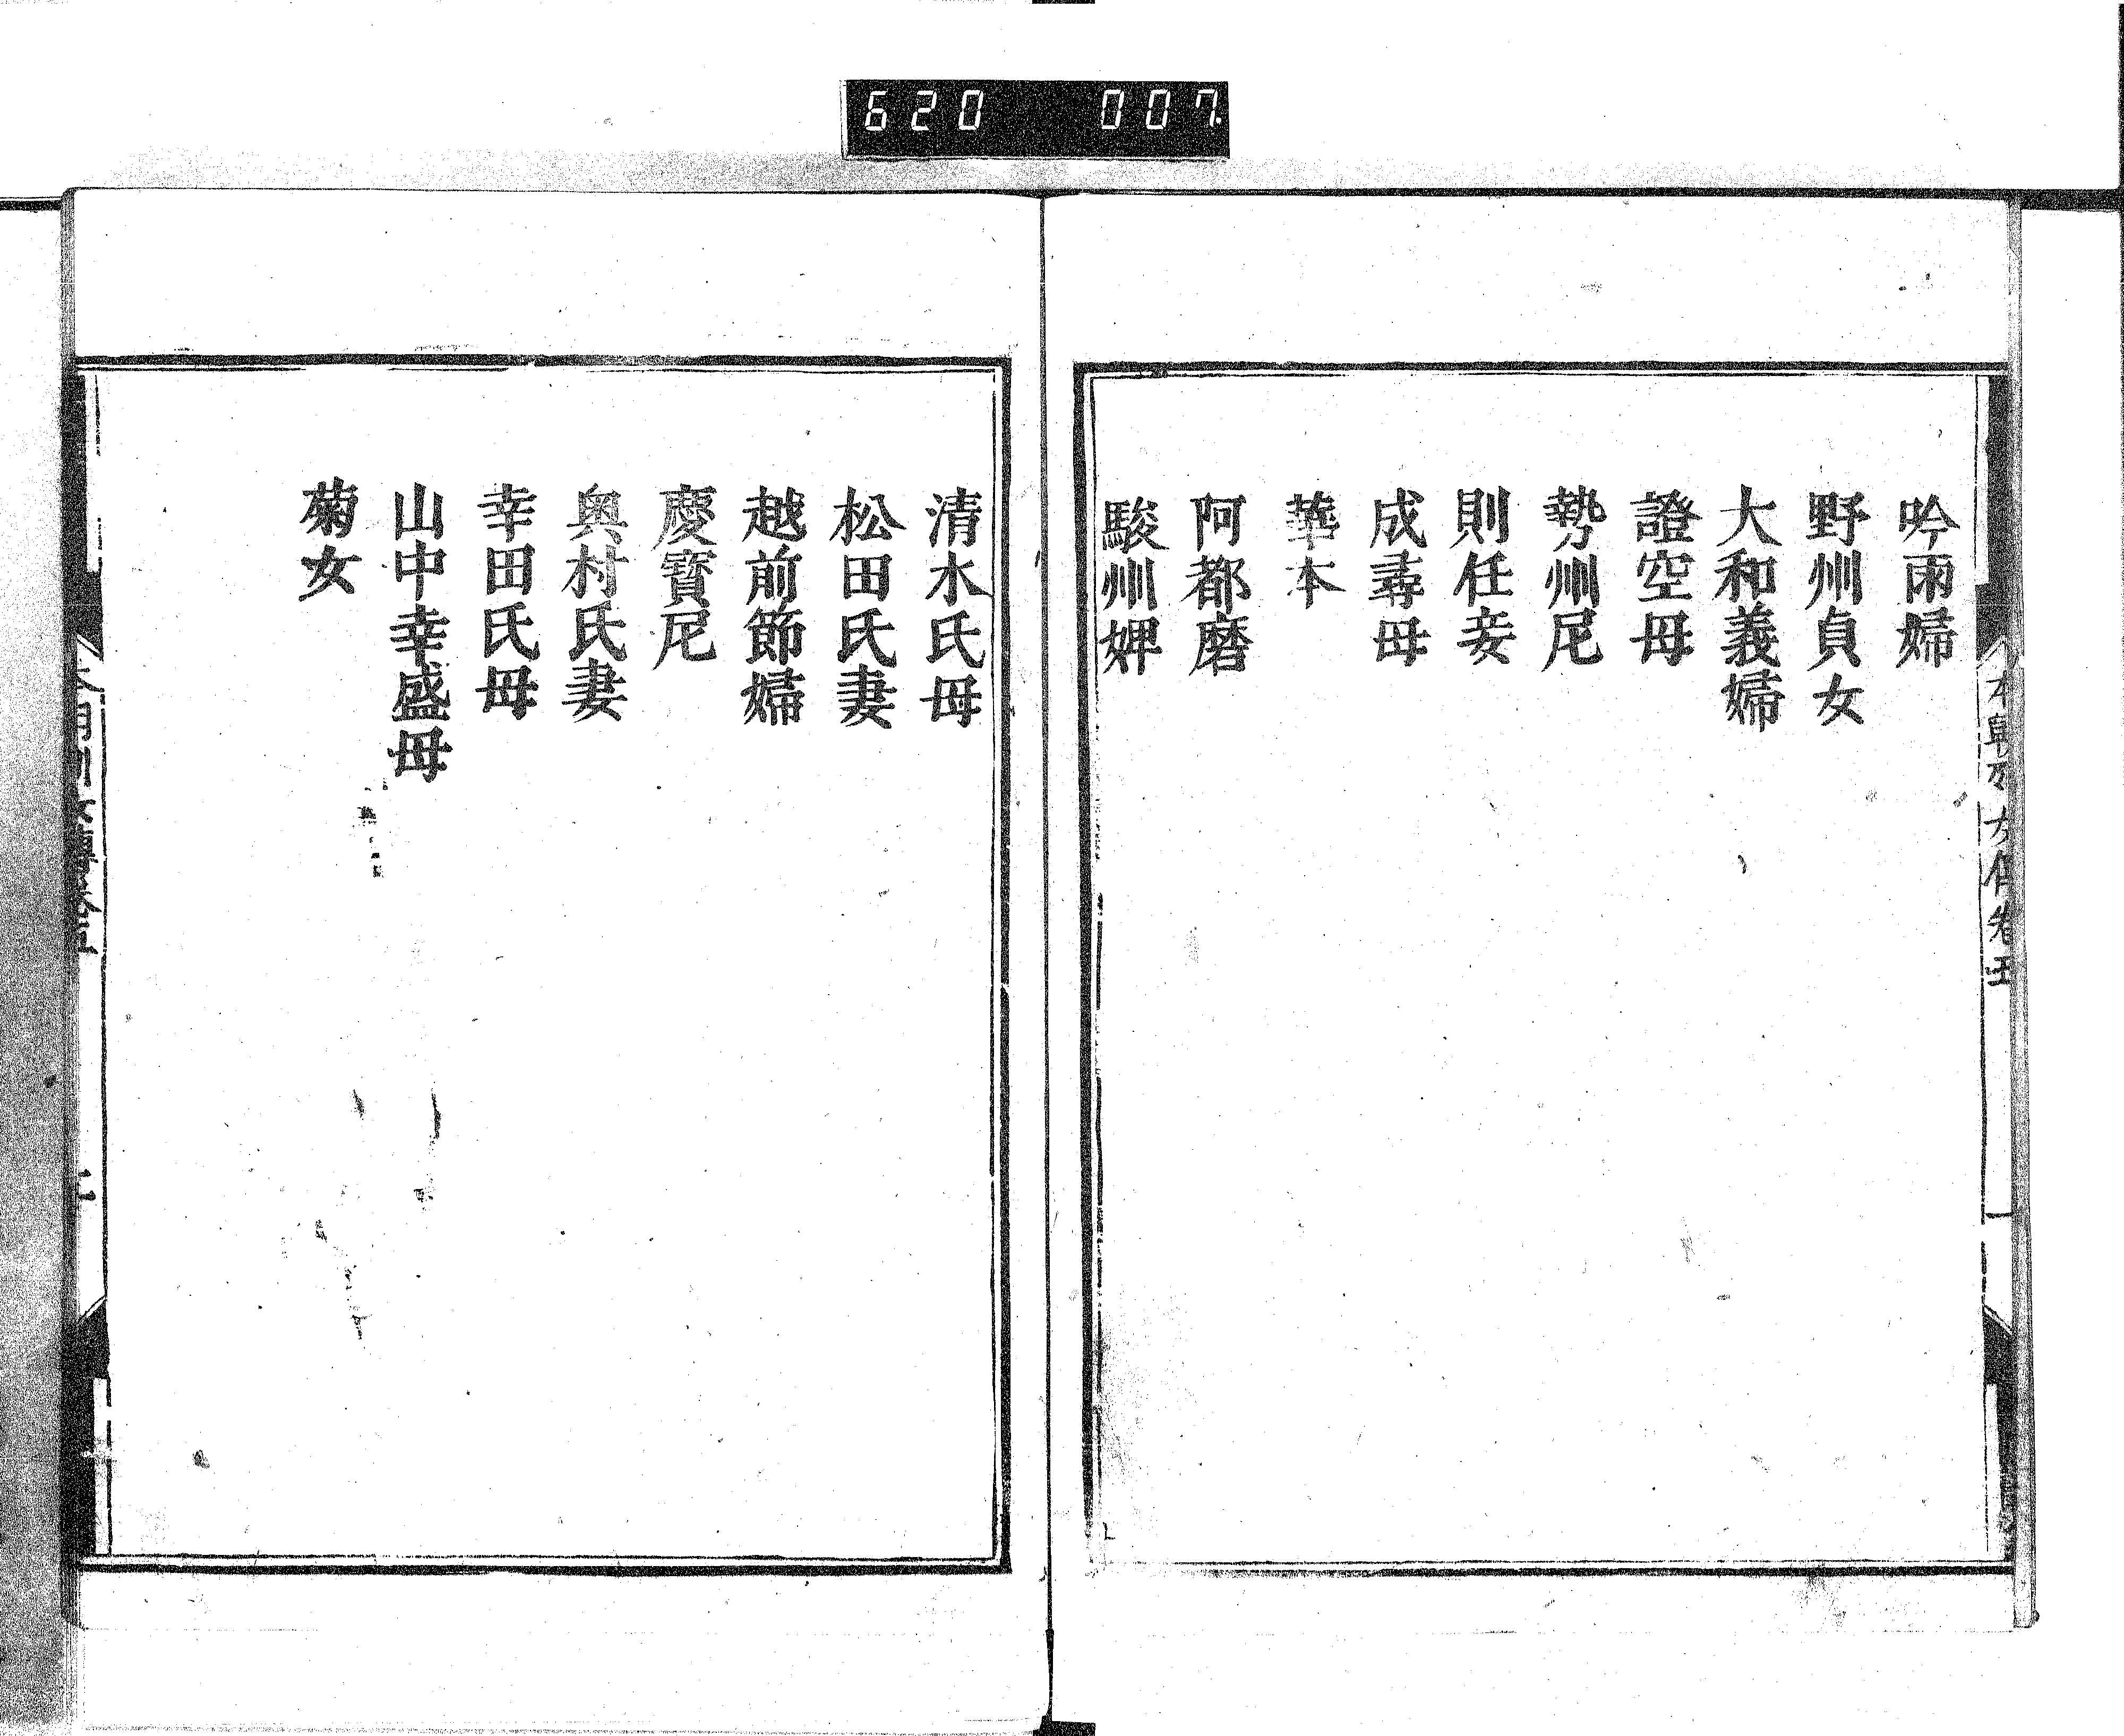 620 007
吟雨婦
野州貞女
大和義婦
證空母
勢州尼
則任妾
成尋母
華本
阿都磨
駿州婢
清水氏母
松田氏妻
越前節婦
慶寶尼
奥村氏妻
幸田氏母
山中幸盛母
菊女